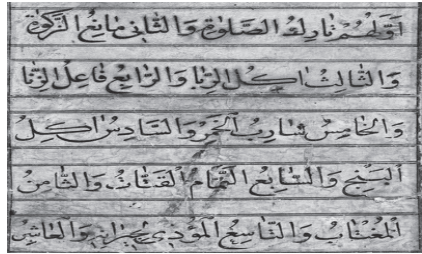 اَوَّلُهُمْ تَارِكُ الصَّلٰوةِ وَالثَّانِى مَانِعُ الزَّكٰوةِ
وَالثَّالِثُ اٰكِلُ الرِّبَا وَالرَّابِعُ فَاعِلُ الزِّنَا
وَالْخَامِسُ شَارِبُ الْخَمْرِ وَالسَّادِسُ اٰكِلُ
وَالسَّابِعُ النَّمَّامُ الْقَتَّاتُ وَالثَّامِنُ
الْمُغْتَابُ وَالتَّاسِعُ الْمُؤْذِى جِيرَانِهِ وَالْعَاشِرُ